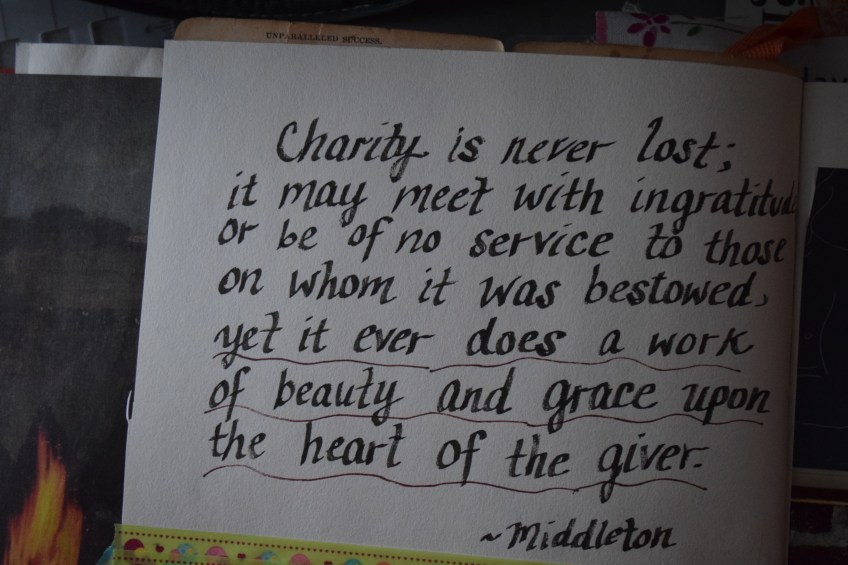 UNPARALLELED SUCCESS.
Charity is never lost;
it may meet with ingratitud
or be of no service to those
on whom it was bestowed,
yet it ever does a work
of beauty and grace upon
the heart of the giver.
~Middleton